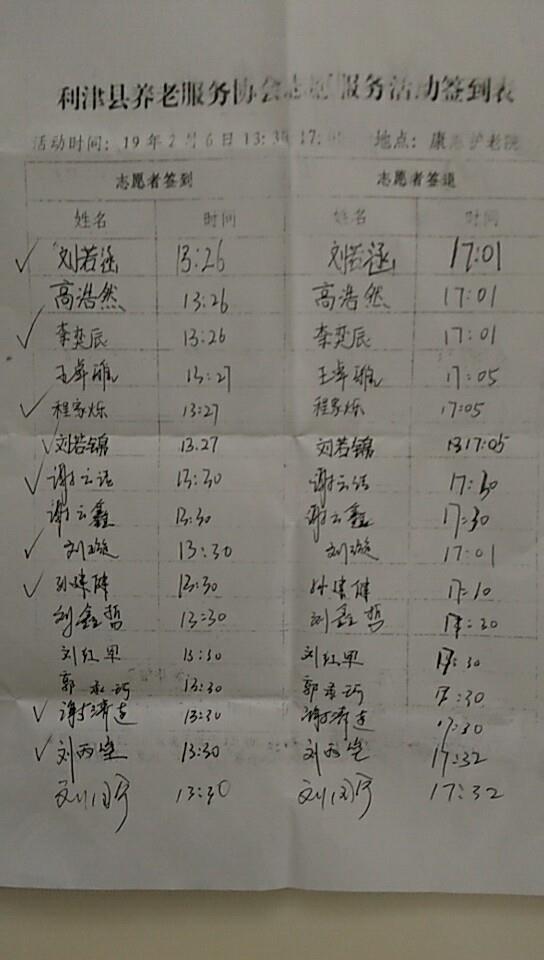 利津县养老服务协会志愿服务活动签到表
活动时间：19年2月6日13:30 17: 地点：康 护老院
志愿者签到 志愿者签退
姓名 时间 姓名 时间
刘若涵 13:26 刘若涵 17:01
高浩然 13:26 高浩然 17:01
李奕辰 13:26 李奕辰 17:01
王卓雅 13:27 王卓雅 17:05
程家烁 13:27 程家烁 17:05
刘若锦 13.27 刘若锦 17:05
谢云洁 13:30 谢云洁 17:30
谢云鑫 13:30 谢云鑫 17:30
刘璇 13:30 刘璇 17:01
孙建健 13:30 孙建健 17:10
刘鑫哲 13:30 刘鑫哲 17:30
刘红果 13:30 刘红果 17:30
郭 13:30 郭 17:30
谢 13:30 谢 17:30
刘 13:30 刘 17:32
刘 13:30 刘 17:32